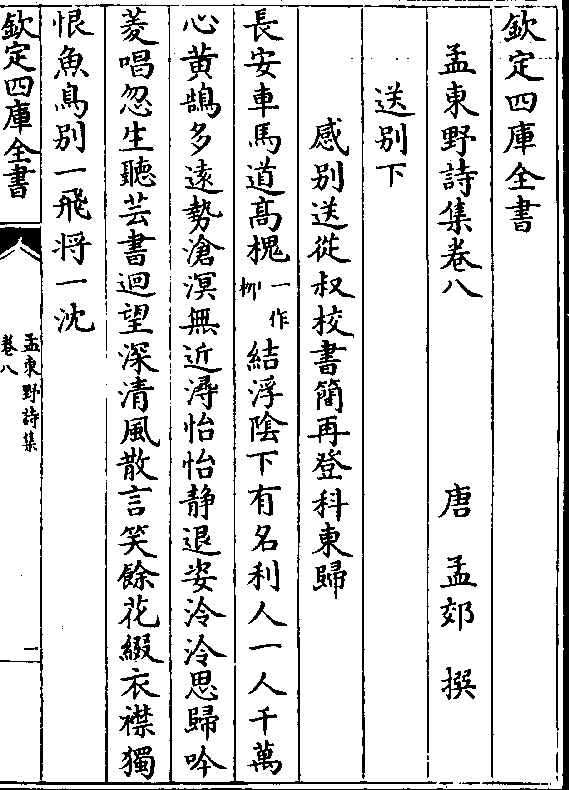 欽定四庫全書
孟東野詩集卷八
唐 孟郊 撰
送別下
感別送從叔校書簡再登科東歸
長安車馬道高槐一作栁結浮陰下有名利人一人千萬
心黄鵠多遠勢滄溟無近潯怡怡静退姿泠泠思歸吟
菱唱忽生聽芸書迴望深清風散言笑餘花綴衣襟獨
恨魚鳥別一飛将一沈
欽定四庫全書
孟東野詩集
卷八
二